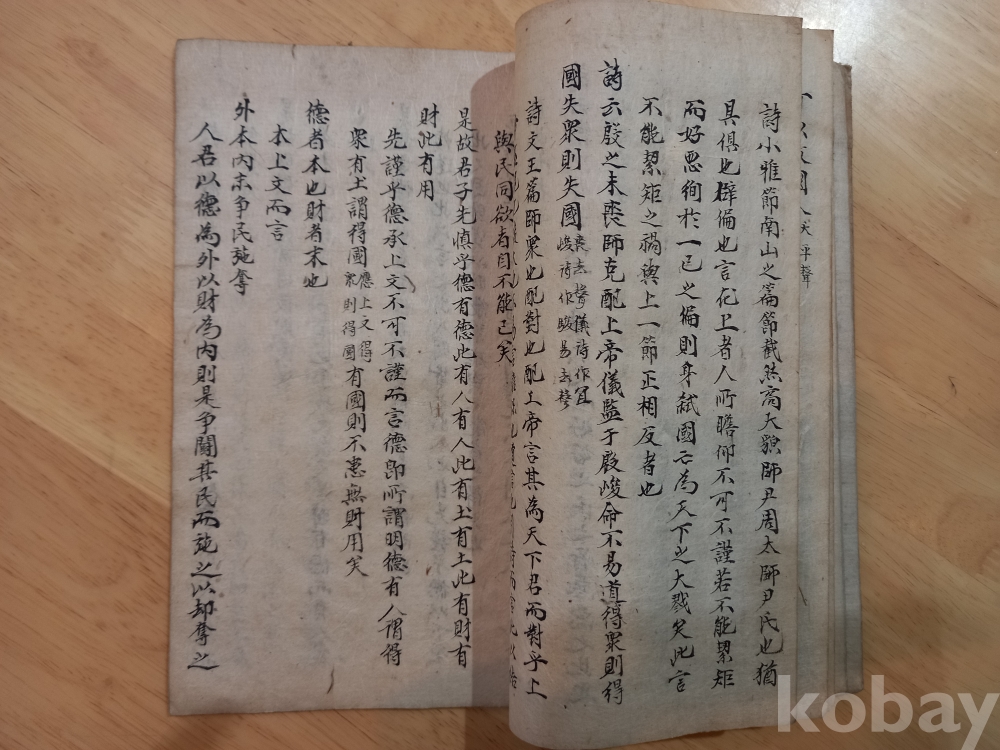 詩小雅節南山之篇節截然高大貌師尹周太師尹氏也猶
具俱也辟偏也言在上者人所瞻仰不可不謹若不能絜矩
而好惡徇於一己之偏則身弒國亡為天下之大戮矣此言
不能絜矩之禍與上一節正相反者也
詩云殷之未喪師克配上帝儀監于殷峻命不易道得衆則得
國失衆則失國
喪去聲儀詩作宜
峻詩作駿易去聲
詩文王篇師衆也配對也配上帝言其為天下君而對乎上
與民同欲者自不能已矣
是故君子先慎乎德有德此有人有人此有土有土此有財有
財此有用
先謹乎德承上文不可不謹而言德即所謂明德有人謂得
衆有土謂得國
應上文得
衆則得國
有國則不患無財用矣
德者本也財者末也
本上文而言
外本內末爭民施奪
人君以德為外以財為內則是爭鬪其民而施之以却奪之
kobay